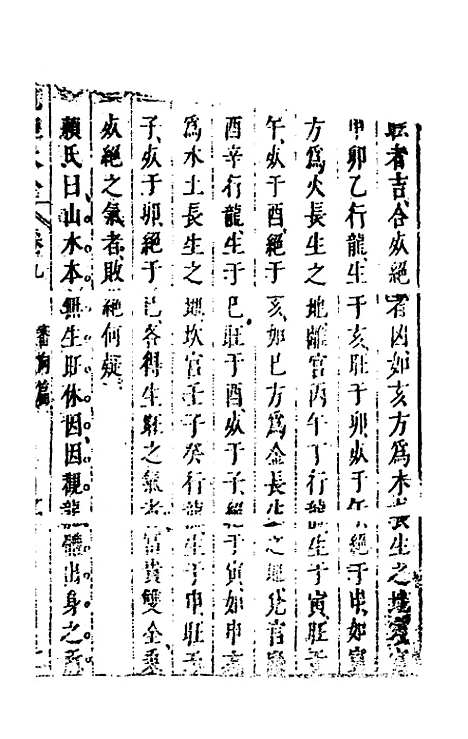 者吉合死絕者凶如亥方為木長生之地震宮
甲卯乙行龍生于亥旺于卯死于午絕于申如寅
方為火長生之地離宮丙午丁行龍生于寅旺于
午死于酉絕于亥如巳方為金長生之地兌宮庚
酉辛行龍生于巳旺于酉死于子絕于寅如申方
為水土長生之地坎宮壬子癸行龍生于申旺于
子死于卯絕于巳各得生旺之氣者富貴雙全乘
死絕之氣者敗絕何疑
賴氏曰山水本無生旺休囚因觀龍體出身之